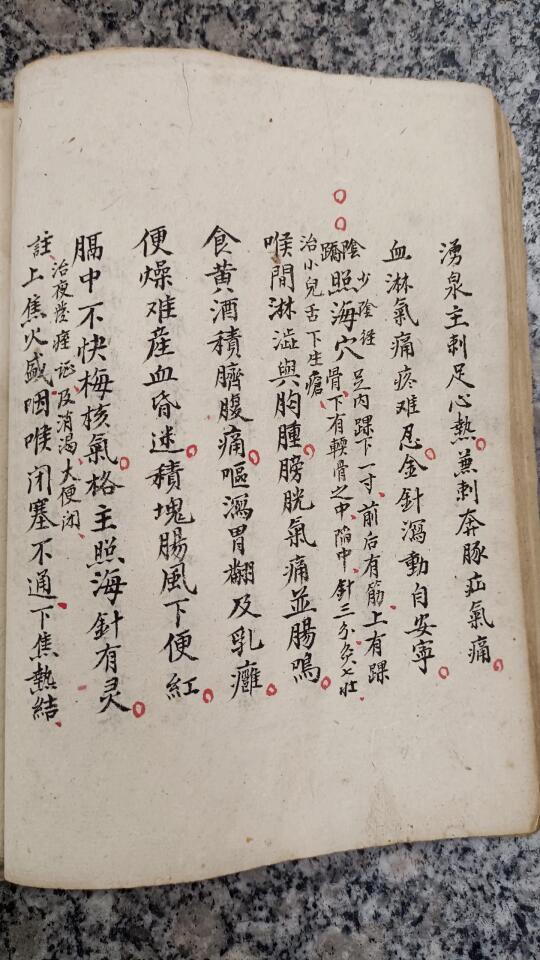 湧泉主刺足心熱兼刺奔豚疝氣痛
血淋氣痛疼难忍金針瀉動自安寧
陰蹻照海穴
少陰経 足内踝下一寸前后有筋上有踝
骨下有輭骨之中陥中針三分灸七壮
治小兒舌下生瘡
喉閒淋澁與胸腫膀胱氣痛並腸鳴
食黄酒積臍腹痛嘔瀉胃翻及乳癰
便燥难産血昏迷積塊腸風下便紅
膈中不快梅核氣格主照海針有灵
治夜發痙证及消渴大便闭
註上焦火盛咽喉闭塞不通下焦熱結